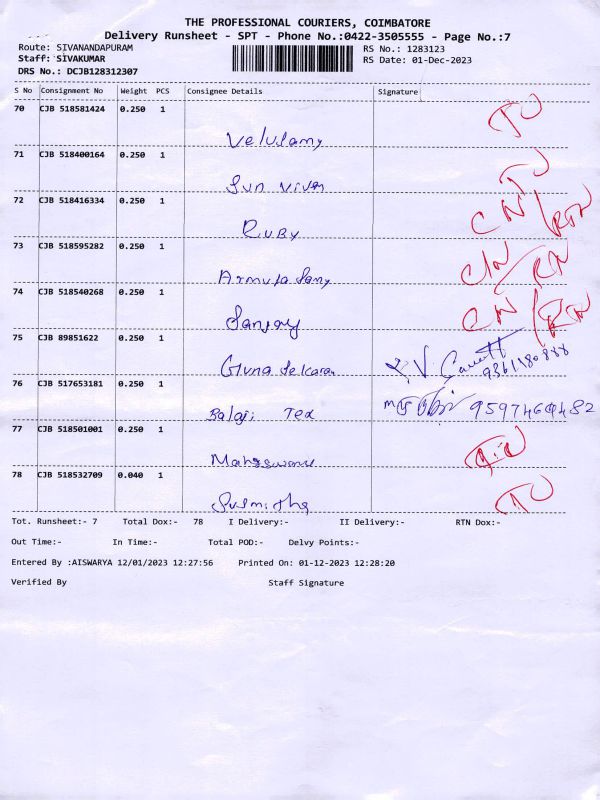 THE PROFESSIONAL COURIERS, COIMBATORE
Delivery Runsheet - SPT - Phone No.:0422-3505555 - Page No.:7
Route: SIVANANDAPURAM RS No.: 1283123
Staff: SIVAKUMAR RS Date: 01-Dec-2023
DRS No.: DCJB128312307
S No Consignment No Weight PCS Consignee Details Signature
70 CJB 518581424 0.250 1
Velusamy
71 CJB 518400164 0.250 1
Sun
72 CJB 518416334 0.250 1 CN/RTN
Ruby
73 CJB 518595282 0.250 1 CN/RN
74 CJB 518540268 0.250 1 CN/RTN
Sanjay
75 CJB 89851622 0.250 1 9361180888
Guna Sekaran
76 CJB 517653181 0.250 1 9597460482
Balaji Tex
77 CJB 518501001 0.250 1
78 CJB 518532709 0.040 1
Susmitha
Tot. Runsheet:- 7 Total Dox:- 78 I Delivery:- II Delivery:- RTN Dox:-
Out Time:- In Time:- Total POD:- Delvy Points:-
Entered By :AISWARYA 12/01/2023 12:27:56 Printed On: 01-12-2023 12:28:20
Verified By Staff Signature